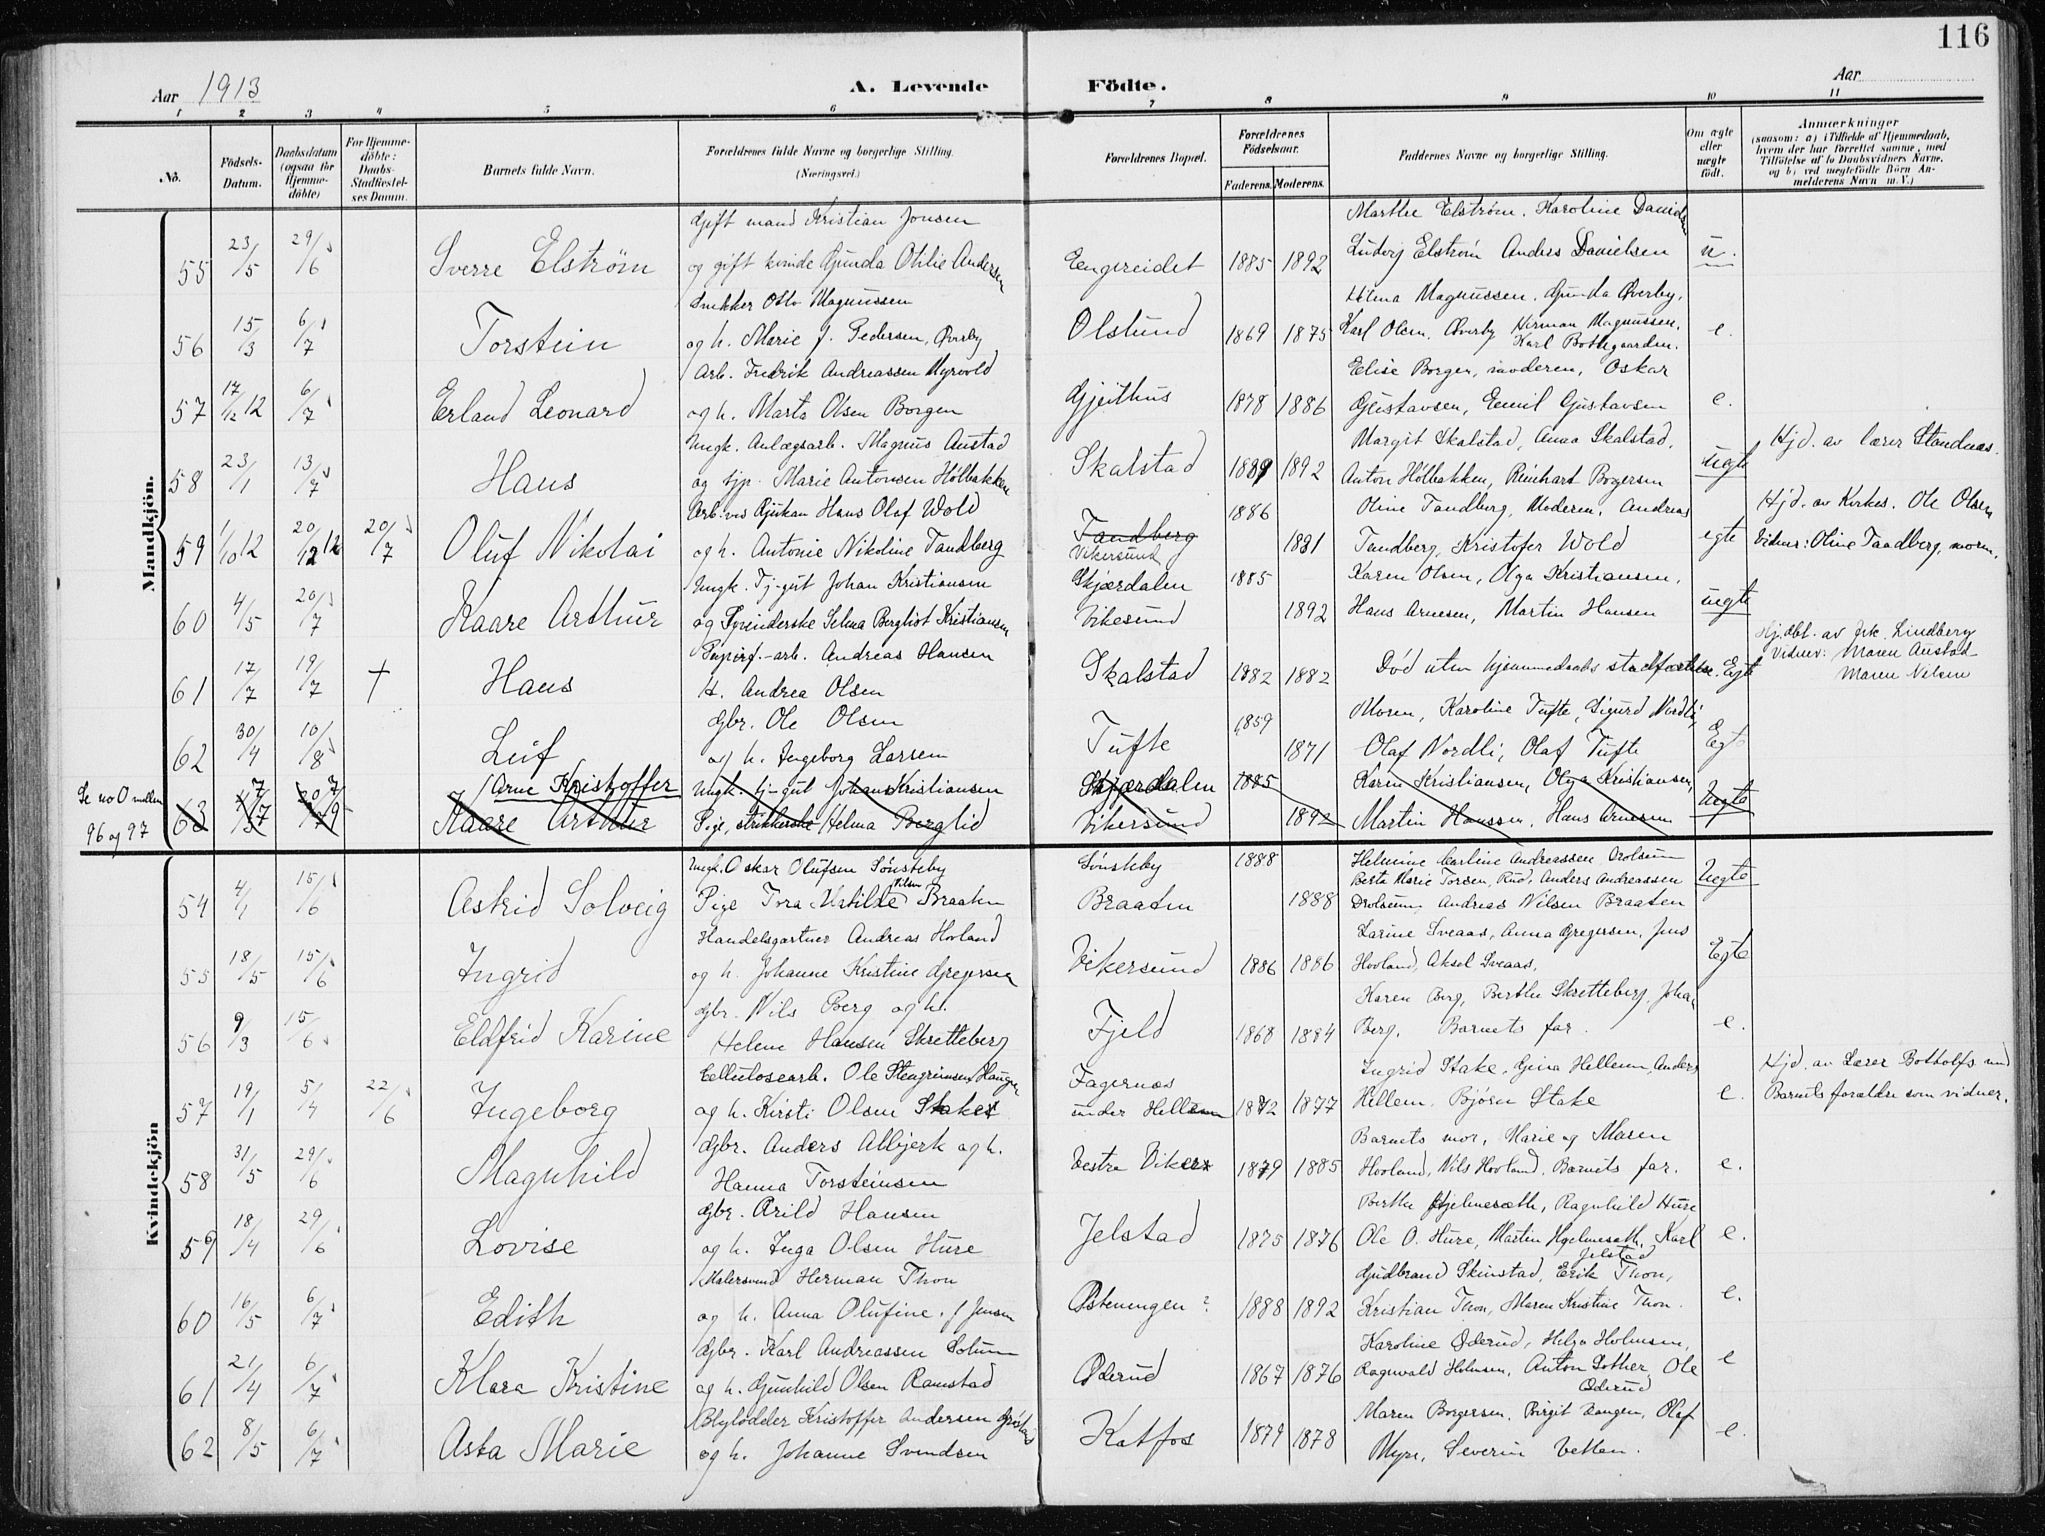 116
Aar 1913
A. Levende Födte.
Aar
1 2 3 4 5 6 7 8 9 10 11
No.
Födsels-Datum.
Daabsdatum (ogsaa for Hjemme-döbte)
For Hjemme-döbte: Daabs-Stadfæstel-ses Datum.
Barnets fulde Navn.
Forældrenes fulde Navne og borgerlige Stilling.
(Næringsvei.)
Forældrenes Bopæl.
Forældrenes Födselsaar.
Faderens. Moderens.
Faddernes Navne og borgerlige Stilling.
Om ægte eller uægte födt.
Anmærkninger
(saasom: a) i Tilfælde af Hjemmedaab,
hvem der har forrettet samme, med
Tilföielse af to Daabsvidners Navne,
og b) ved uægtefödte Börn An-
melderens Navn m. V.)
Mandkjön.
Gift mand Kristian Jonsen Marthe Elstrøm. Karoline Daniels
55 23/5 29/6 Sverre Elstrøm og gift kvinde Gunda Otilie Andersen Engereidet 1885 1892 Ludvig Elstrøm Anders Danielsen u.
Snekker Otto Magnussen Hilma Magnussen. Gunda Øverby.
56 15/3 6/7 Torstein og h. Marie f. Pedersen, Øverby Olslund 1869 1875 Karl Olsen, Øverby Herman Magnussen. Karl Bottegaarden. e.
Arb. Fredrik Andreassen Myrvold Elise Borgen, moderen, Oskar
57 17/12 12 6/7 Erland Leonard og h. Marta Olsen Borgen Gjeithus 1878 1886 Gustavsen, Emil Gustavsen e.
Ungk. Anlægsarb. Magnus Austad Margit Skalstad, Anna Skalstad. Hjd. av lærer Standnæs.
58 23/1 13/7 Haus og tjp. Marie Antonsen Hölbakken Skalstad 1889 1892 Anton Hölbakken, Reinhart Borgersen uegte
Arb. ved Rjukan Hans Olaf Wold 1886 Oline Tandberg, Moderen. Andreas Hjd. av Kirkes. Ole Olsen
59 1/10 12 20/12 12 20/7 Oluf Nikolai og h. Antonie Nikoline Tandberg Tandberg Vikersund 1891 Tandberg, Kristofer Wold egte Vidner: Oline Tandberg, morm.
Ungk. Tj-gut Johan Kristiansen Skjærdalen 1885 Karen Olsen, Olga Kristiansen,
60 4/5 20/7 Kaare Arthur og Spinderske Selma Bergliot Kristiansen Vikesund 1892 Hans Arnesen, Martin Hansen uegte
Papirf.-arb. Andreas Hansen Hj.dbt. av frk. Lindberg
61 17/7 19/7 † Hans H. Andrea Olsen Skalstad 1882 1882 Død uten hjemmedaabs stadfæstelse. Egte Vidner: Maren Austad Maren Nilsen
Gbr. Ole Olsen 1859 Moren, Karoline Tufte, Sigurd Nordli,
62 30/4 10/8 Leif og h. Ingeborg Larsen Tufte 1871 Olaf Nordli, Olaf Tufte Egte
Se no 0 mellem 96 og 97
Arne Kristoffer Ungk. tj-gut Johan Kristiansen Skjærdalen 1885 Karen Kristiansen, Olga Kristiansen,
63 Kaare Arthur Pige, strikkerske Helma Berglid Vikersund 1892 Martin Hanssen, Hans Arnesen Uegte
Kvindekjön
Ungk. Oskar Olufsen Sønsteby Sønsteby 1888 Helmine Carline Andreassen Drolsum
54 4/1 15/6 Astrid Solveig Pige Tora Matilde Nilsen Braaten Braaten 1888 Berta Marie Torsen, Rud, Anders Andreassen Drolsum, Andreas Nilsen Braaten Uegte
Handelsgartner Andreas Hovland Larine Sveaas, Anna Gregersen, Jens
55 18/5 15/6 Ingrid og h. Johanne Kristine Gregersen Vikersund 1886 1886 Hovland, Aksel Sveaas, Egte
Gbr. Nils Berg og h. Karen Berg, Berthe Skretteberg, Johan
56 9/3 15/6 Eldfrid Karine Helene Hansen Skretteberg Fjeld 1868 1884 Berg. Barnets far. e.
Cellulosearb. Ole Stengrimsen Haugen Fagernæs Ingrid Stake, Gina Hellem, Anders Hjd. av Lærer Botholfs med
57 19/1 5/4 22/6 Ingeborg og h. Kirsti Olsen Stake under Hellem 1872 1877 Hellem. Björen Stake e. Barnets forældre som vidner.
Gbr. Anders Albjerk og h. Barnets mor, Marie og Maren
58 31/5 29/6 Magnhild Hanna Torsteinsen Vestre Viker 1879 1885 Hovland, Nils Hovland. Barnets far. e.
Gbr. Arild Hansen Berthe Hjelmesæth, Ragnhild Hure
59 18/4 29/6 Lovise og h. Inga Olsen Hure Jelstad 1875 1876 Ole O. Hure, Martin Hjelmesæth, Karl Jelstad e.
Malersvend Herman Thon Gudbrand Skinstad, Erik Thon,
60 16/5 6/7 Edith og h. Anna Olufine f. Jensen Østeningen? 1888 1892 Kristian Thon, Maren Kristine Thon. e.
Gbr. Karl Andreassen Solum Karoline Øderud, Helga Holmsen,
61 21/4 6/7 Klara Kristine og h. Gunhild Olsen Ramstad Øderud 1867 1876 Ragnvald Holmsen, Anton Sother, Ole Øderud e
Blylødder Kristoffer Andersen Maren Borgersen, Birgit Vangen, Olaf
62 8/5 6/7 Asta Marie og h. Johanne Svendsen Katfos 1879 1878 Myre, Severin Vetten. e.